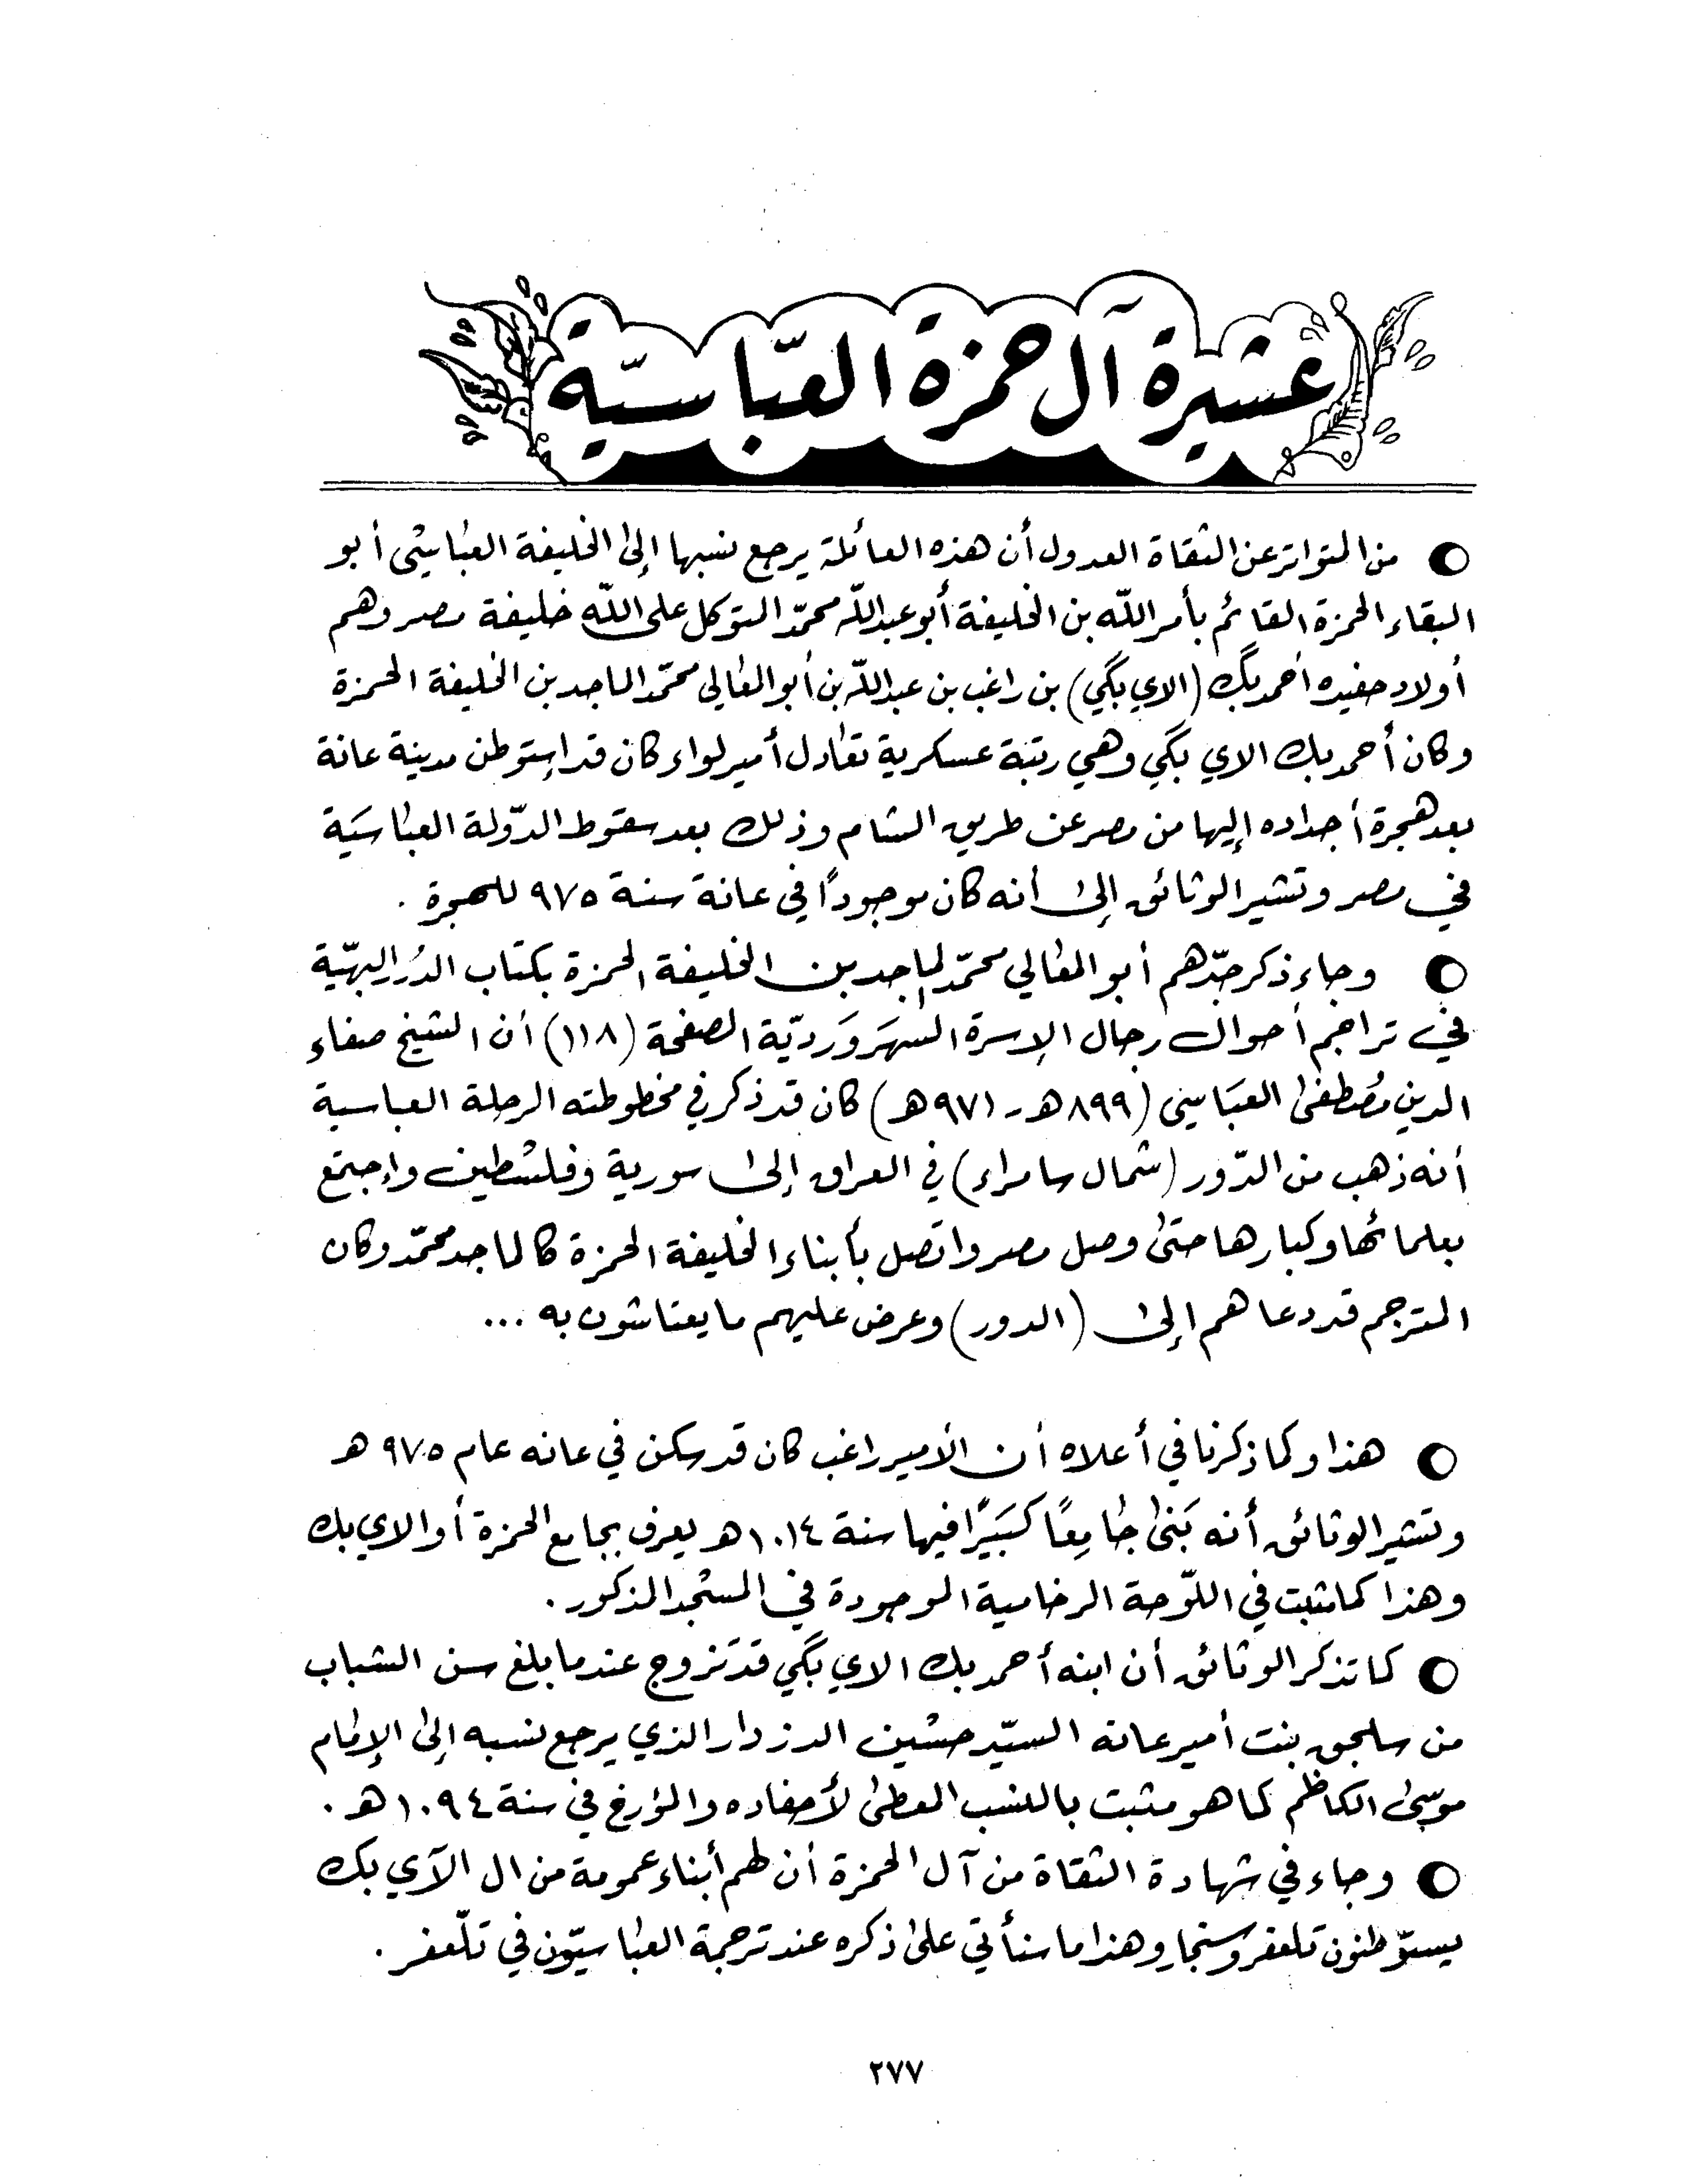 عشيرة آل حمزة العبّاسيّة
من المتواتر عن الثقاة العدول أن هذه العائلة يرجع نسبها إلى الخليفة العباسي أبو
البقاء الحمزة القائم بأمر اللّه بن الخليفة أبو عبداللّه محمّد المتوكل على اللّه خليفة مصر وهم
أولاد حفيده أحمد بگ (الاي بگي) بن راغب بن عبداللّه بن أبو المعالي محمّد الماجد بن الخليفة الحمزة
وكان أحمد بك الاي بگي وهي رتبة عسكرية تعادل أمير لواء كان قد إستوطن مدينة عانة
بعد هجرة أجداده إليها من مصر عن طريق الشام وذلك بعد سقوط الدّولة العباسيَة
في مصر وتشير الوثائق إلى أنه كان موجوداً في عانة سنة ٩٧٥ للهجرة .
وجاء ذكر جدّهم أبو المعالي محمّد الماجد بن الخليفة الحمزة بكتاب الدُرر البهيّة
في تراجم أحوال رجال الإسرة السهَروَرديّة الصفحة (١١٨) أن الشيخ صفاء
الدين مُصطفى العبَاسي (٨٩٩هـ - ٩٧١هـ) كان قد ذكر في مخطوطته الرحلة العباسية
أنه ذهب من الدّور (شمال سامراء) في العراق إلى سورية وفلسطين وإجتمع
بعلمائها وكبارها حتى وصل مصر واتصل بأبناء الخليفة الحمزة كالماجد محمّد وكان
المترجم قد دعاهم إلى (الدور) وعرض عليهم ما يعتاشون به ...
هذا وكما ذكرنا في أعلاه أن الأمير راغب كان قد سكن في عانه عام ٩٧٥ هـ
وتشير الوثائق أنه بَنى جامِعًا كبَيرًا فيها سنة ١٠١٤هـ يعرف بجامع الحمزة أو الاي بك
وهذا كما مثبت في اللّوحة الرخامية الموجودة في المسجد المذكور .
كما تذكر الوثائق أن ابنه أحمد بك الاي بگي قد تزوج عندما بلغ سن الشباب
من سلجق بنت أمير عانه السيّد حسين الدزدار الذي يرجع نسبه إلى الإمام
موسى الكاظم كما هو مثبت بالنسب المعطى لأحفاده والمؤرخ في سنة ١٠٩٤هـ .
وجاء في شهادة الثقاة من آل الحمزة أن لهم أبناء عمومة من ال الآي بك
يستوطنون تلعفر وسنجار وهذا ما سنأتي على ذكره عند ترجمة العباسيّون في تلّعفر .
٢٧٧